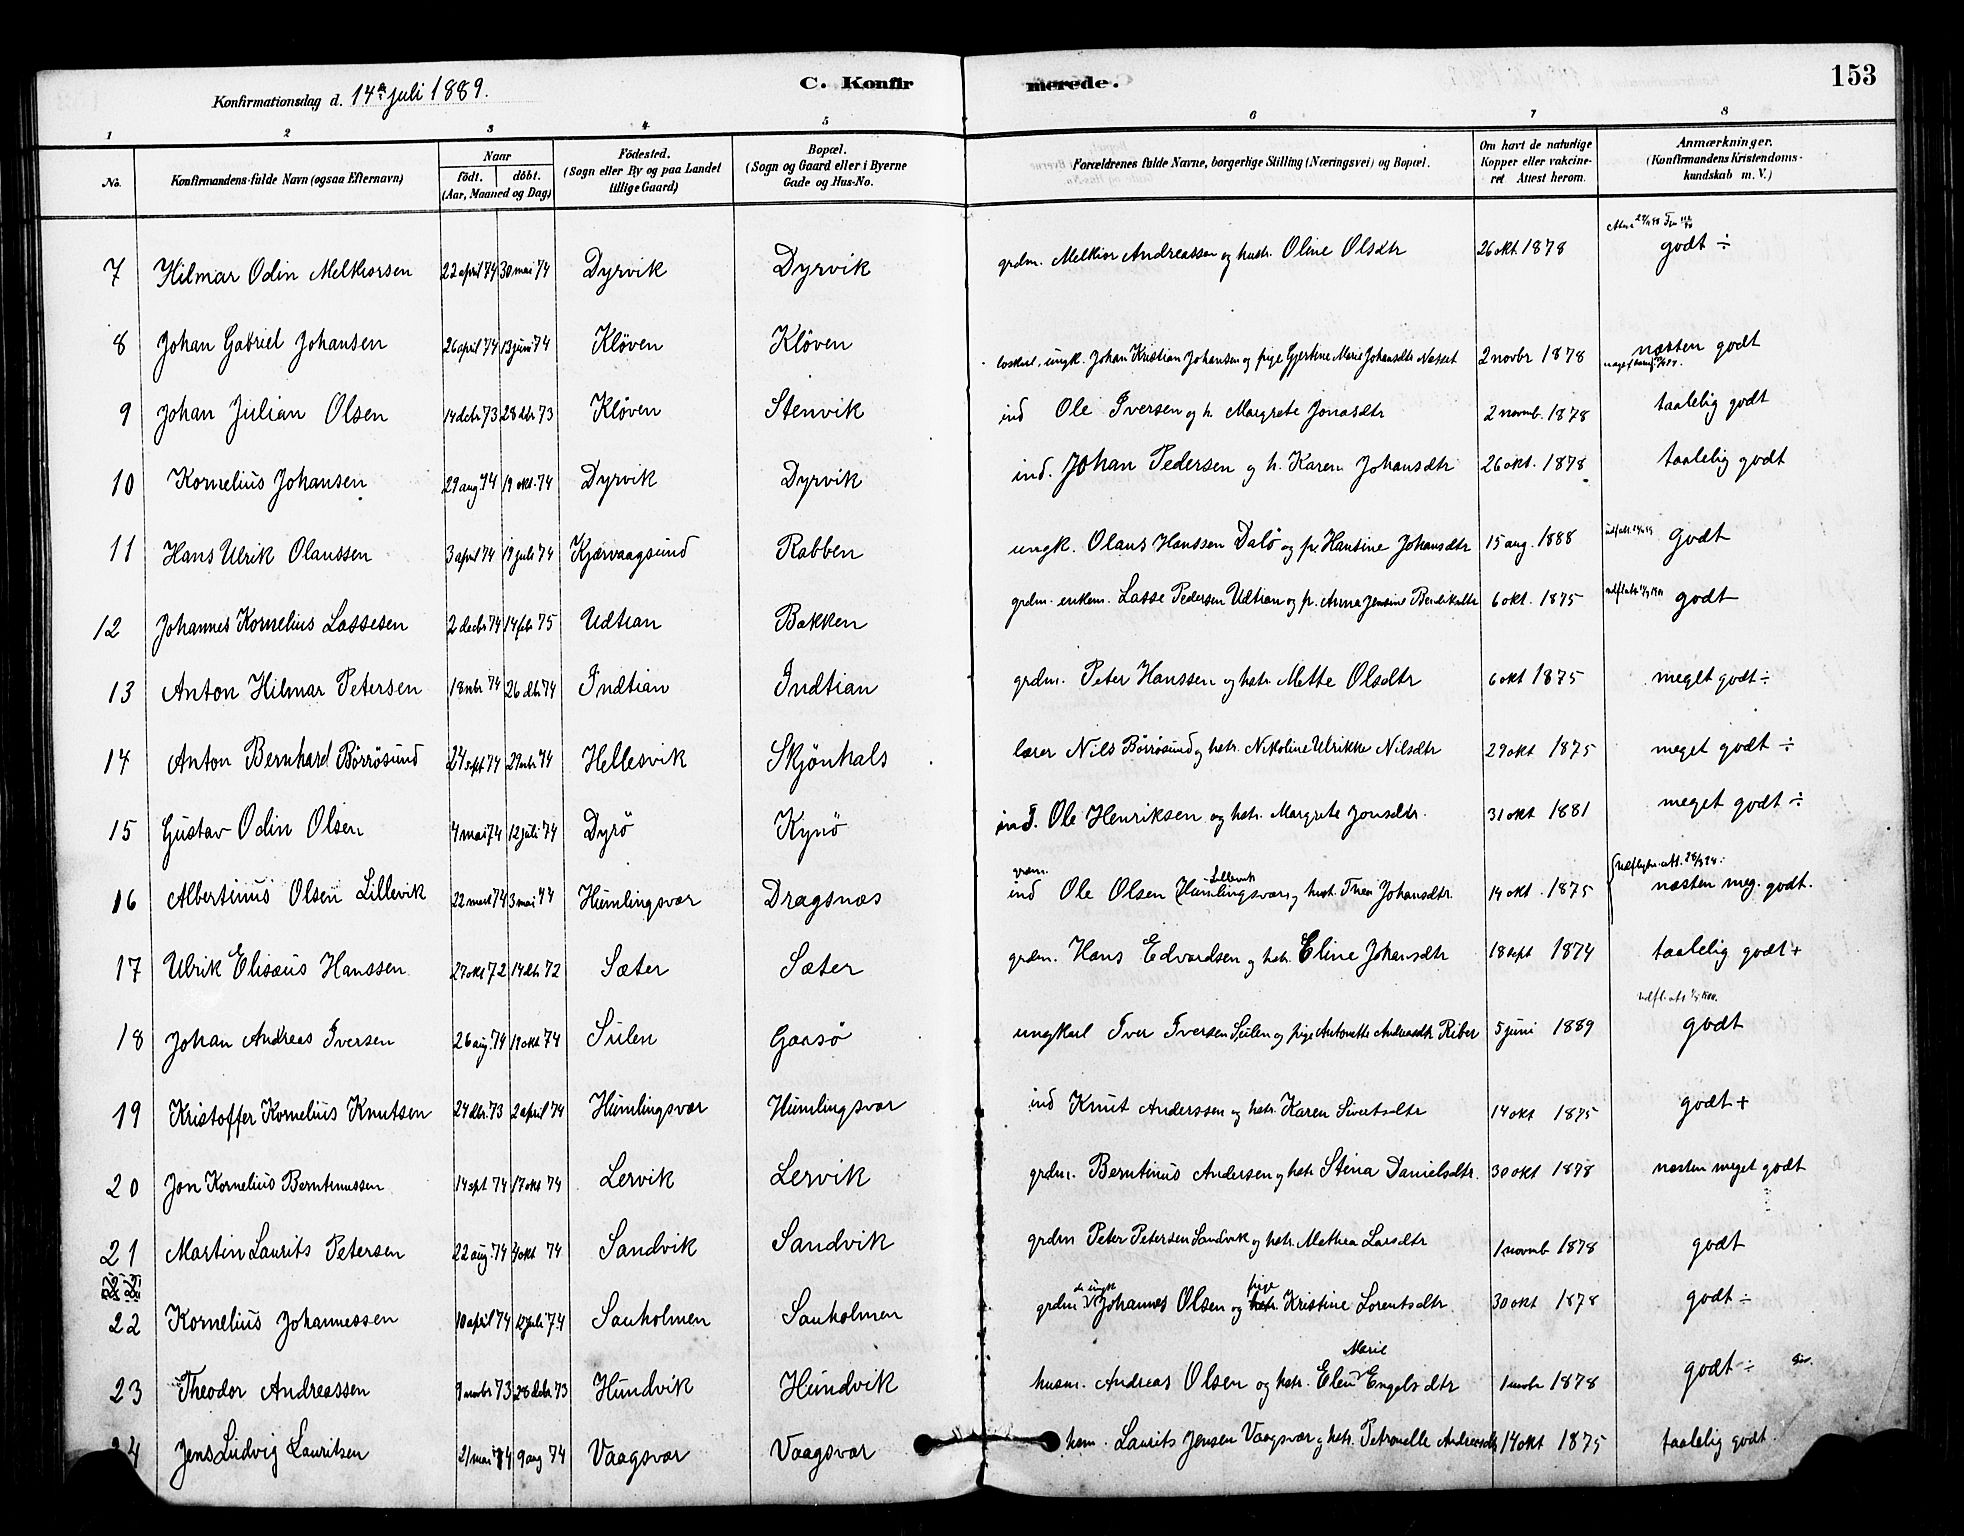 153
C. Konfir merede.
Konfirmationsdag d. 14de juli 1889.
1 2 3 4 5 6 7 8
No. Konfirmandens fulde Navn (ogsaa Efternavn) Naar födt. döbt. (Aar, Maaned og Dag) Födested. (Sogn eller By og paa Landet tillige Gaard) Bopæl. (Sogn og Gaard eller i Byerne Gade og Hus-No. Forældrenes fulde Navne, borgerlige Stilling (Næringsvei) og Bopæl. Om havt de naturlige Kopper eller vakcineret Attest herom. Anmærkninger. (Konfirmandens Kristendomskundskab m. V.)
7 Hilmar Odin Melkiorsen 22 april 74 30 mai 74 Dyrvik Dyrvik grdm. Melkior Andreassen og hustr. Oline Olsdtr 26 okt. 1878 godt ÷
8 Johan Gabriel Johansen 26 april 74 13 juni 74 Kløven Kløven ungk. Johan Kristian Johansen og pige Gjertine Marie Johansdtr Nesset 2 novbr 1878 næsten godt
9 Johan Julian Olsen 14 debr 73 28 dbr 73 Kløven Stenvik ind Ole Iversen og h. Margrete Jonasdtr 2 novmb. 1878 taalelig godt
10 Kornelius Johansen 29 aug 74 19 okt. 74 Dyrvik Dyrvik ind. Johan Pedersen og h. Karen Johansdtr 26 okt. 1878 taalelig godt
11 Hans Ulrik Olaussen 3 april 74 19 juli 74 Kjærvaagsund Rabben ungk. Olaus Hanssen Dalø og p. Hansine Johansdtr 15 aug. 1888 godt
12 Johannes Kornelius Lassesen 2 decbr 74 14 feb 75 Udtian Bakken grdm. enkem. Lasse Pedersen Udtian og p. Anna Jensine Bendiksdtr 6 okt. 1875 godt
13 Anton Hilmar Petersen 18 nbr 74 26 dbr 74 Indtian Indtian grdm. Peter Hanssen og hstr. Mette Olsdtr 6 okt 1875 meget godt ÷
14 Anton Bernhard Börrösund 24 sept 74 29 nbr 74 Hellesvik Skjönhals lærer Nils Börrösund og hstr. Nikoline Ulrikke Nilsdtr 29 okt 1875 meget godt ÷
15 Gustav Odin Olsen 4 mai 74 12 juli 74 Dyrö Kynö ind. Ole Henriksen og hstr. Margrete Jonsdtr. 31 okt 1881 meget godt ÷
16 Albertinus Olsen Lillevik 22 mart 74 3 mai 74 Humlingsvær Dragsnæs ind Ole Olsen Humlingsvær Lillevik og hust. Thea Johansdtr. 14 okt. 1875 næsten meg. godt.
17 Ulrik Elisæus Hanssen 27 okt 72 14 dbr 72 Sæter Sæter grdm. Hans Edvardsen og hstr. Eline Johansdtr 18 sept 1874 taalelig godt +
18 Johan Andreas Iversen 26 aug. 74 11 okt 74 Sulen Gaasø ungkarl Iver Iversen Sulen og pige Antonette Andreasdtr Riber 5 juni 1889 godt
19 Kristoffer Kornelius Knutsen 24 dbr. 73 2 april 74 Humlingsvær Humlingsvær ind Knut Anderssen og hstr. Karen Sivertsdtr 14 okt 1875 godt +
20 Jon Kornelius Berntinussen 14 sept 74 17 okt 74 Lervik Lervik grdm. Berntinus Andersen og hstr Stina Danielsdtr. 30 okt 1878 næsten meget godt
21 Martin Laurits Petersen 22 aug. 74 4 okt 74 Sandvik Sandvik grdm Peter Petersen Sandvik og hstr. Mathea Larsdtr 1 novmb 1878 godt
22 Kornelius Johannessen 10 april 74 12 juli 74 Sauholmen Sauholmen grdm Johannes Olsen og pige Kristine Lorentsdtr 30 okt 1878 godt ÷
23 Theodor Andreassen 9 novbr 73 28 debr 73 Hundvik Hundvik husm. Andreas Olsen og hstr. Elen Marie Engelsdtr 1 novbr 1878 godt ÷
24 Jens Ludvig Lauritsen 21 mai 74 9 aug 74 Vaagsvær Vaagsvær hsm. Laurits Jensen Vaagsvær og hstr. Petronelle Andreasdtr 14 okt 1875 taalelig godt.